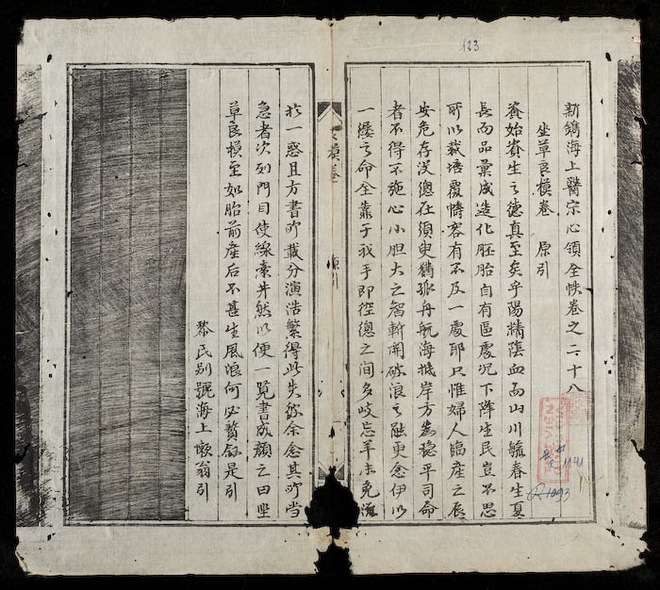 123
新鐫海上醫宗心領全帙卷之二十八
坐草良模卷 原引
資始資生之德真至矣乎陽精陰血而山川毓春生夏
長而品彙成造化胚胎自有區處况下降生民豈不思
所以栽培覆幬容有不及一處耶只惟婦人臨產之辰
安危存没總在須臾猶孤舟航海機岸方為穩平司命
者不得不施心小胆大之智斬開破浪之融更念伊以
一縷之命全靠于我手即徑總之間多岐忘羊未免滋
於一惑且方書所載分演浩繁得此失彼余念其所當
急者次列門目使綠素井然以便一覧書成顏之曰坐
草良模至如胎前產后不甚生風浪何必贅叙是引
黎民别號海上懶翁引
良模卷
原引
1141
R1093